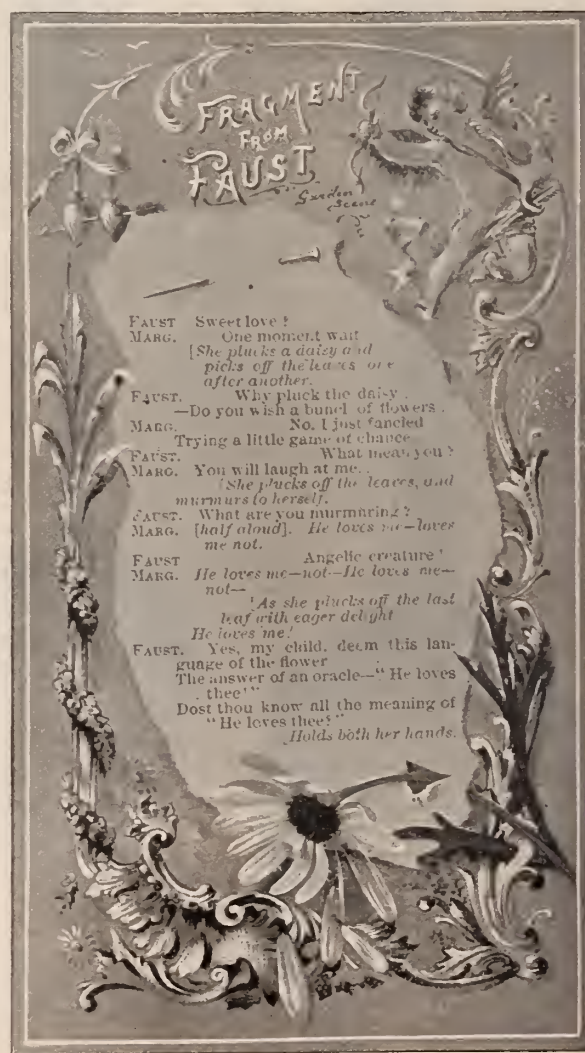 FRAGMENT
FROM
FAUST
Garden
Scene
FAUST Sweet love!
MARG. One moment wait
[She plucks a daisy and
picks off the leaves one
after another.
FAUST. Why pluck the daisy.
—Do you wish a bunch of flowers.
MARG. No. I just fancied
Trying a little game of chance
FAUST. What mean you?
MARG. You will laugh at me..
[She plucks off the leaves, and
murmurs to herself.
FAUST. What are you murmuring?
MARG. [half aloud]. He loves me—loves
me not.
FAUST Angelic creature!
MARG. He loves me—not—He loves me—
not—
[As she plucks off the last
leaf with eager delight
He loves me!
FAUST. Yes, my child, deem this lan-
guage of the flower
The answer of an oracle—"He loves
thee!"
Dost thou know all the meaning of
"He loves thee?"
[Holds both her hands.